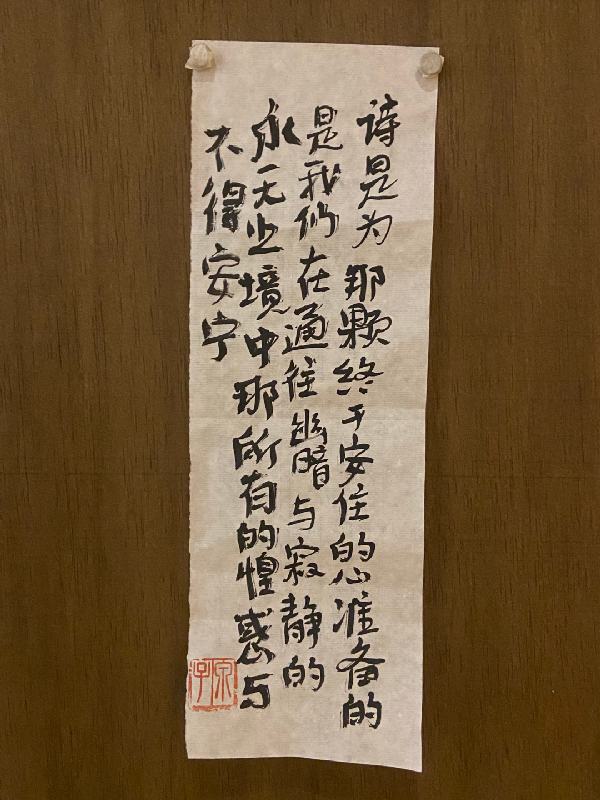 诗是为那颗终于安住的心准备的
是我们在通往幽暗与寂静的
永无止境中那所有的惶惑与
不得安宁
泉子